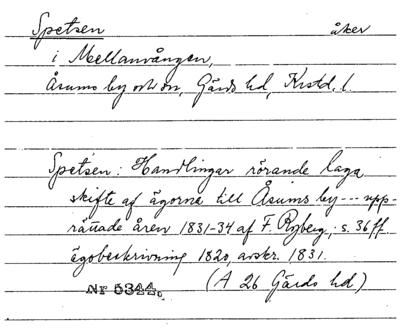 Spetsen åker
i Mellanvången,
Åsums by och sn, Gärds hd, Krstd. l.
Spetsen: Handlingar rörande laga
skifte af ägorna till Åsums by --- upp-
rättade åren 1831-34 af F. Ryberg, s. 36 ff
ägobeskrivning 1820, avskr. 1831.
Nr 5344. (A 26 Gärds hd)